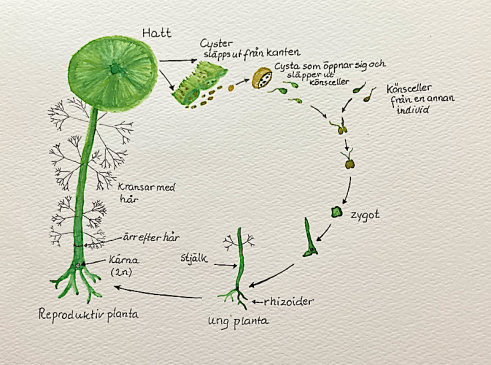 Hatt
Cyster
släpps ut från kanten
Cysta som öppnar sig och
släpper ut
könsceller
Könsceller
från en annan
individ
Kransar med
hår
ärr efter hår
Kärna
(2n)
Stjälk
zygot
rhizoider
Reproduktiv planta
Ung planta